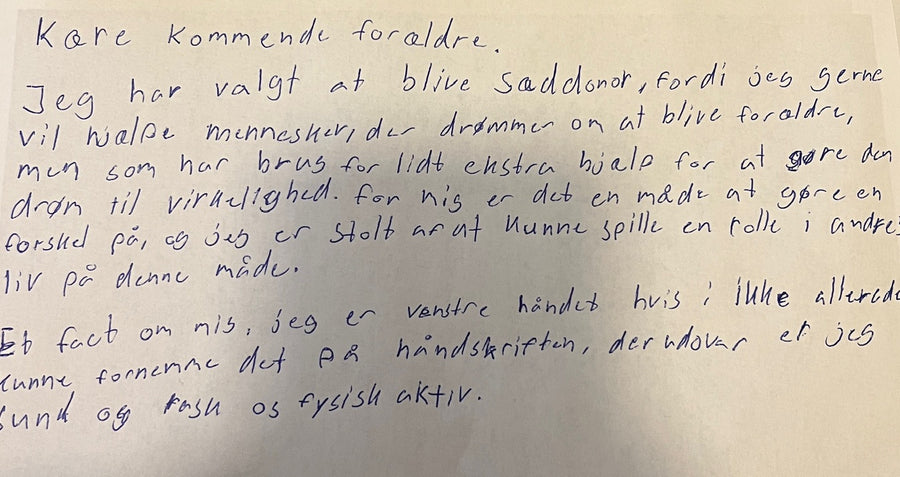 Kære kommende forældre.
Jeg har valgt at blive sæddonor, fordi jeg gerne
vil hjælpe mennesker, der drømmer om at blive forældre,
men som har brug for lidt ekstra hjælp for at gøre den
drøm til virkelighed. for mig er det en måde at gøre en
forskel på, og jeg er stolt af at kunne spille en rolle i andres
liv på denne måde.
Et fact om mig, jeg er venstre håndet hvis i ikke allerede
kunne fornemme det på håndskriften, derudover er jeg
sund og rask og fysisk aktiv.